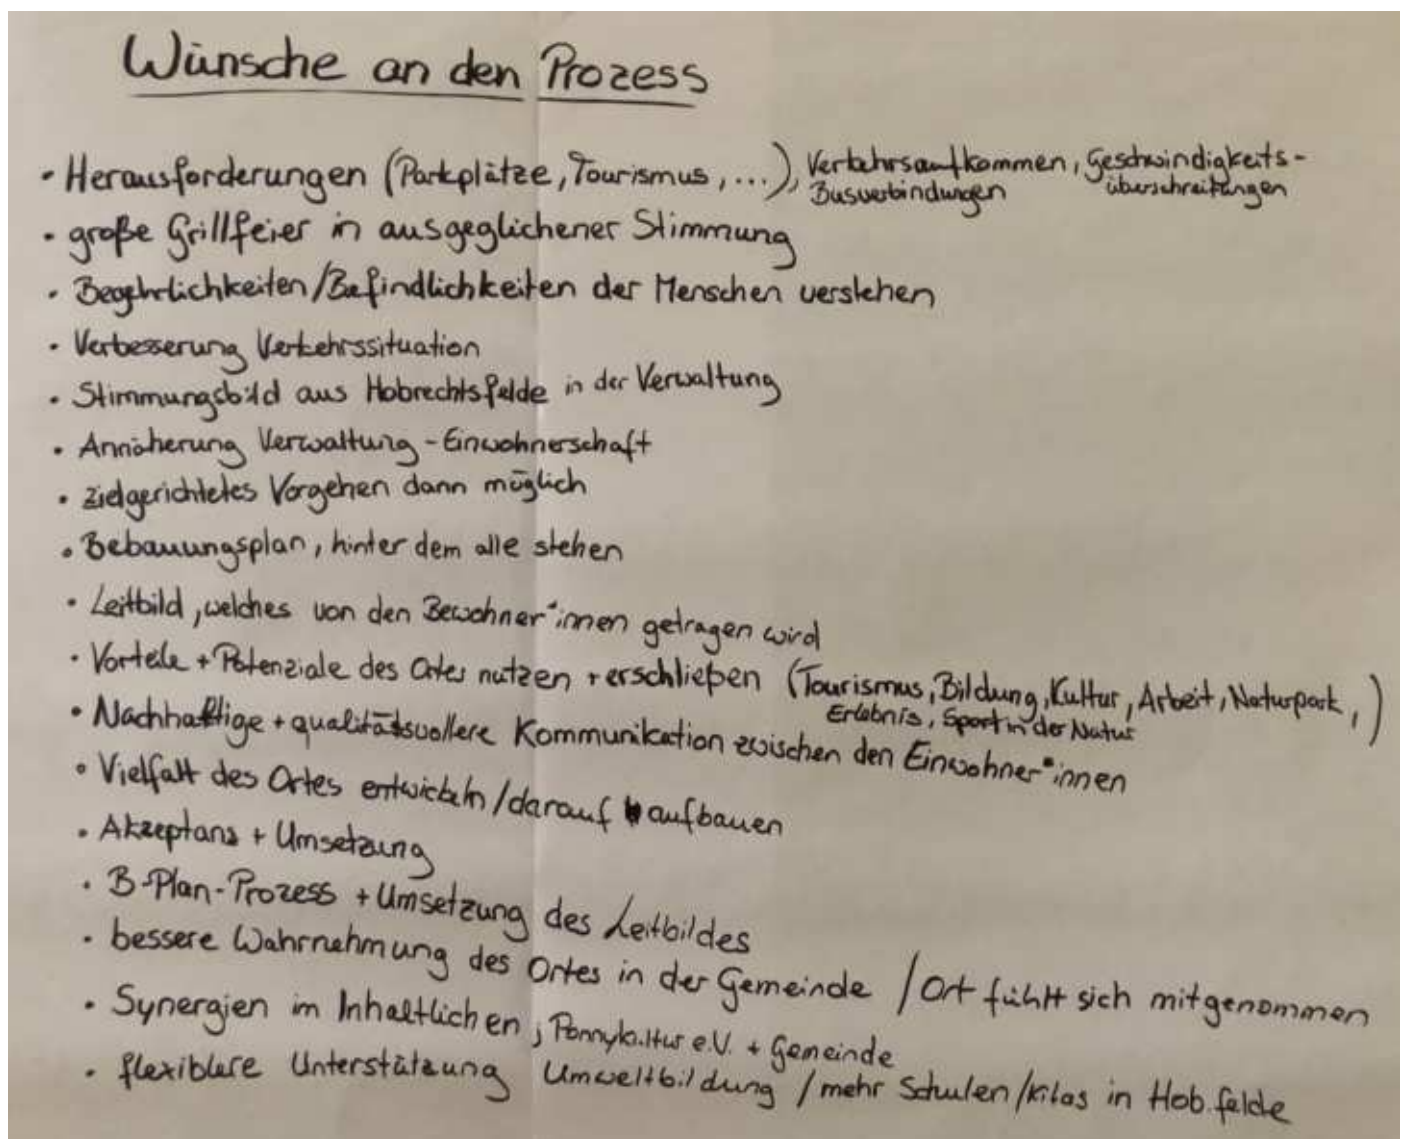 Wünsche an den Prozess
• Herausforderungen (Parkplätze, Tourismus, ...), Verkehrsaufkommen, Geschwindigkeits-
Busverbindungen überschreitungen
• große Grillfeier in ausgeglichener Stimmung
• Begehrlichkeiten/Befindlichkeiten der Menschen verstehen
• Verbesserung Verkehrssituation
• Stimmungsbild aus Hobrechtsfelde in der Verwaltung
• Annäherung Verwaltung - Einwohnerschaft
• zielgerichtetes Vorgehen dann möglich
• Bebauungsplan, hinter dem alle stehen
• Leitbild, welches von den Bewohner*innen getragen wird
• Vorteile + Potenziale des Ortes nutzen + erschließen (Tourismus, Bildung, Kultur, Arbeit, Naturpark, )
Erlebnis, Sport in der Natur
• Nachhaltige + qualitätsvollere Kommunikation zwischen den Einwohner*innen
• Vielfalt des Ortes entwickeln/darauf aufbauen
• Akzeptans + Umsetzung
• B-Plan-Prozess + Umsetzung des Leitbildes
• bessere Wahrnehmung des Ortes in der Gemeinde / Ort fühlt sich mitgenommen
• Synergien im Inhaltlichen, Ponnykultur e.V. + Gemeinde
• flexiblere Unterstützung Umweltbildung / mehr Schulen/Kitas in Hob.felde